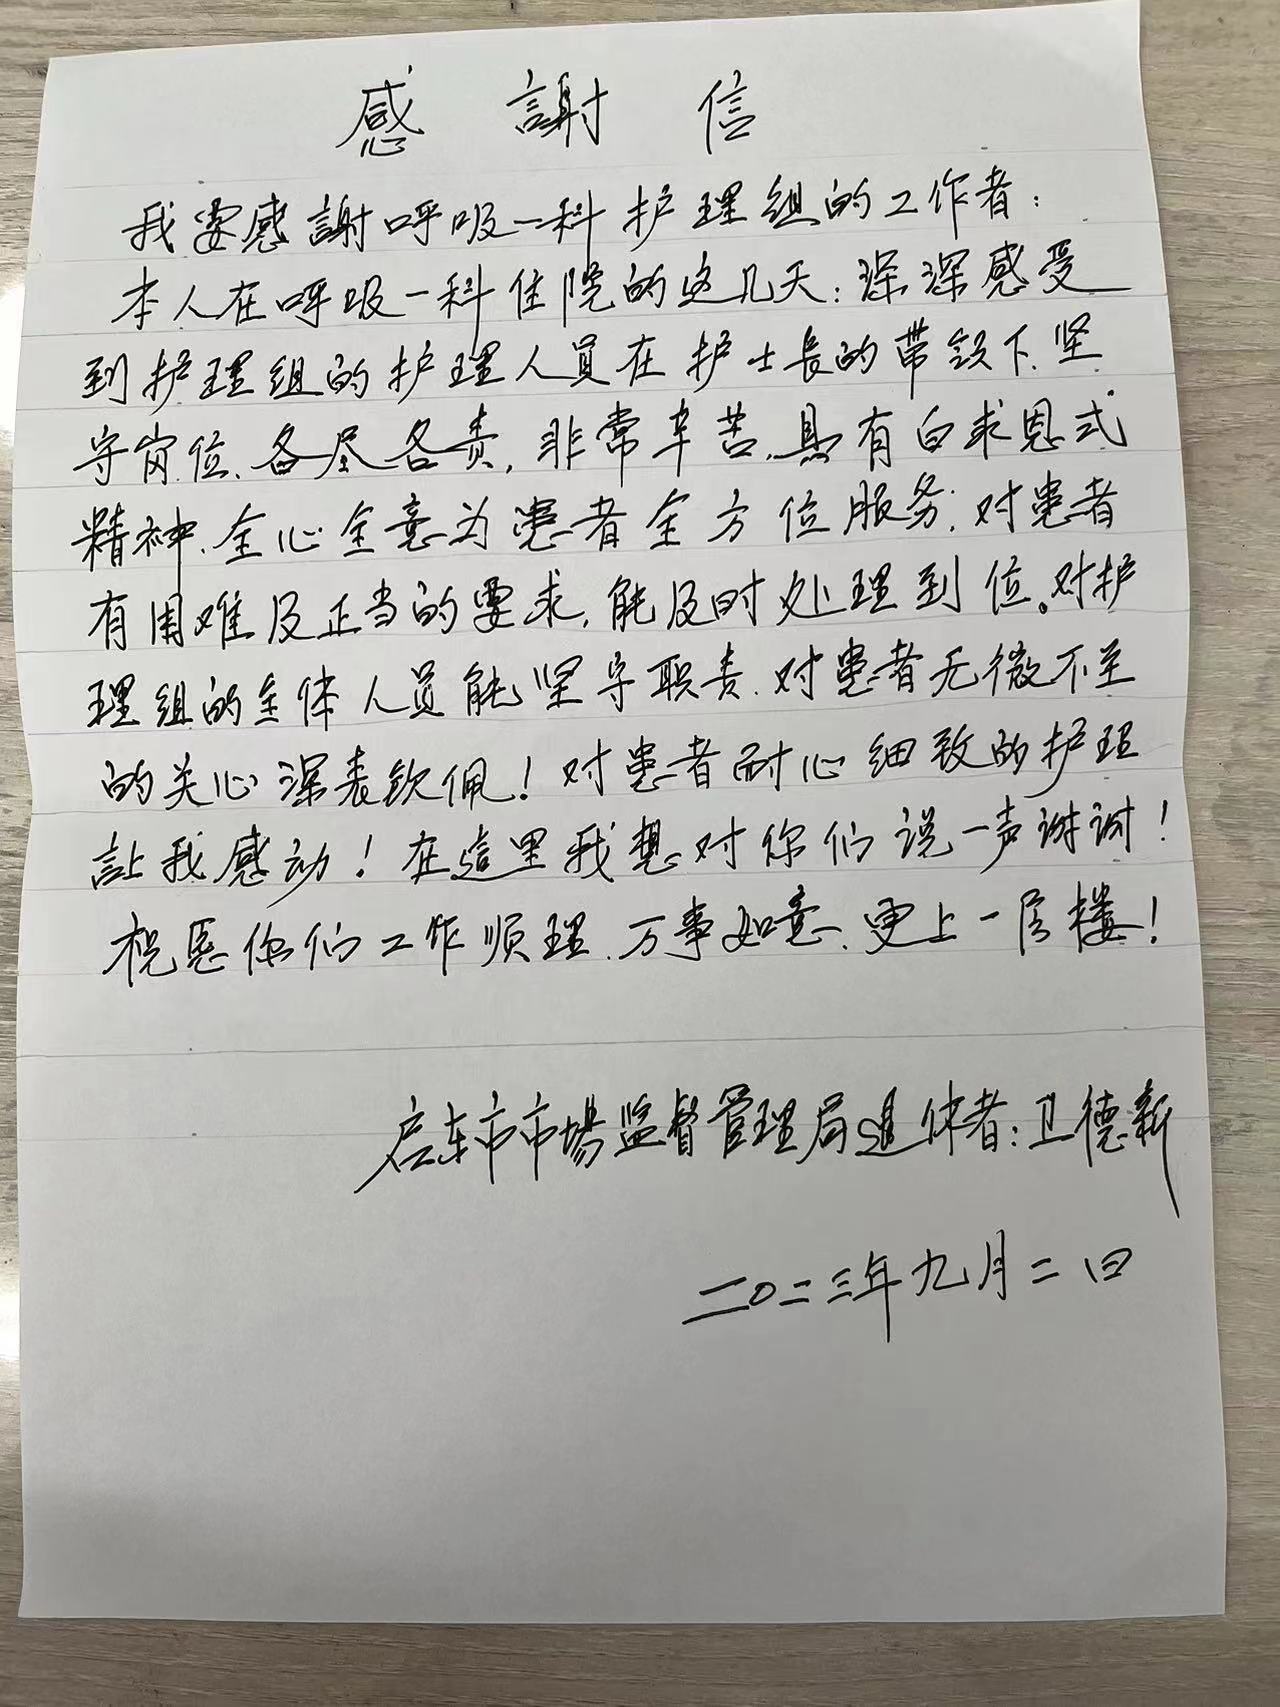 感謝信
我要感謝呼吸一科护理组的工作者：
本人在呼吸一科住院的这几天：深深感受
到护理组的护理人员在护士長的带领下、坚
守岗位、各尽各责，非常辛苦、具有白求恩式
精神、全心全意为患者全方位服务；对患者
有困难及正当的要求，能及时处理到位。对护
理组的全体人员能坚守职责、对患者无微不至
的关心深表钦佩！对患者耐心细致的护理
讓我感动！在這里我想对你们说一声谢谢！
祝愿你们工作顺理、万事如意、更上一层楼！
启东市市場监督管理局退休者：卫德新
二〇二三年九月二日